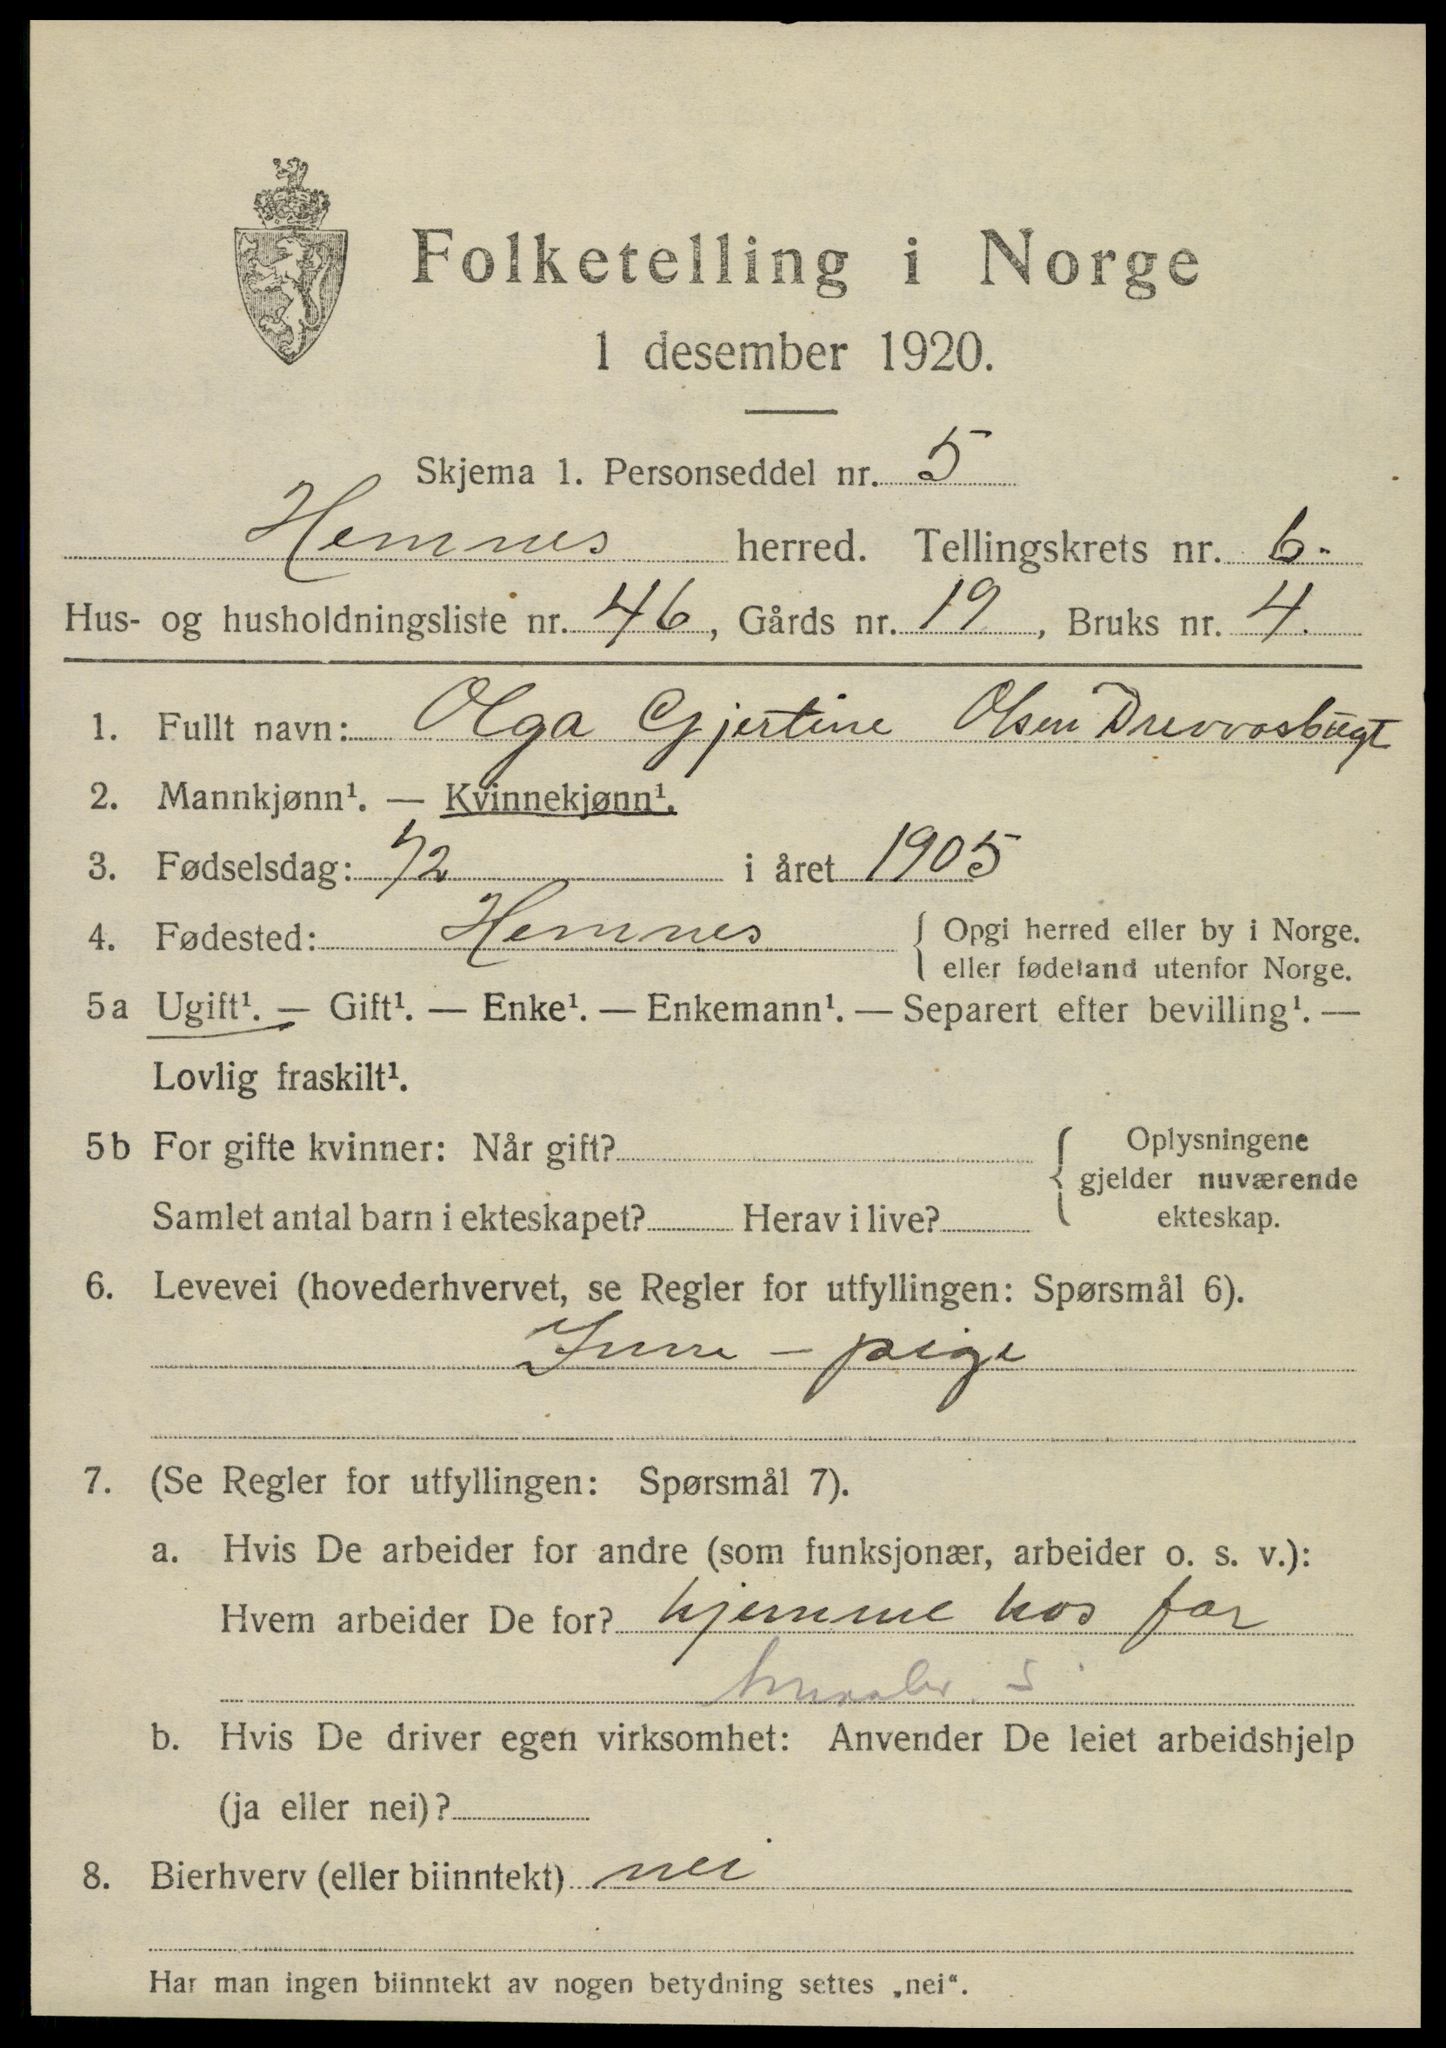 Folketelling i Norge
1 desember 1920.
Skjema 1. Personseddel nr. 5
Hemnes herred. Tellingskrets nr. 6.
Hus- og husholdningsliste nr. 46, Gårds nr. 19, Bruks nr. 4.
1. Fullt navn: Olga Gjertine Olsen Drevvasbugt
2. Mannkjønn¹. — Kvinnekjønn¹.
3. Fødselsdag: 5/2 i året 1905
4. Fødested: Hemnes { Opgi herred eller by i Norge.
eller fødeland utenfor Norge.
5a Ugift¹. — Gift¹. — Enke¹. — Enkemann¹. — Separert efter bevilling¹. —
Lovlig fraskilt¹.
5b For gifte kvinner: Når gift? { Oplysningene
gjelder nuværende
Samlet antal barn i ekteskapet? Herav i live? ekteskap.
6. Levevei (hovederhvervet, se Regler for utfyllingen: Spørsmål 6).
Inne - pige
7. (Se Regler for utfyllingen: Spørsmål 7).
a. Hvis De arbeider for andre (som funksjonær, arbeider o. s. v.):
Hvem arbeider De for? hjemme hos far
b. Hvis De driver egen virksomhet: Anvender De leiet arbeidshjelp
(ja eller nei)?
8. Bierhverv (eller biinntekt) nei
Har man ingen biinntekt av nogen betydning settes „nei“.